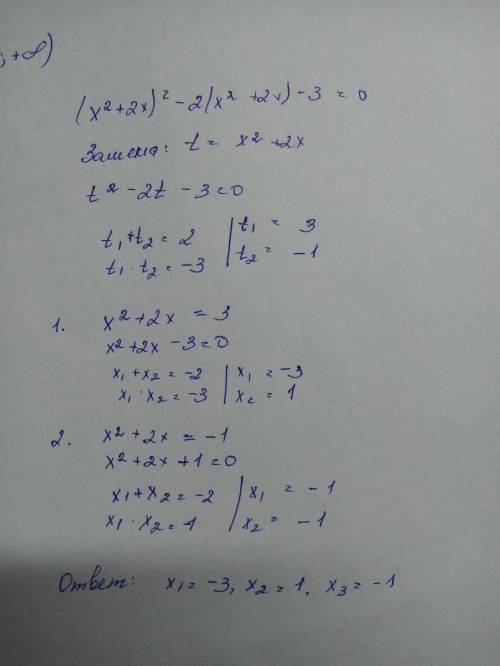 ; +∞)
(x²+2x)² - 2(x² +2x) - 3 = 0
Замена: t = x² +2x
t² - 2t - 3 = 0
t₁+t₂ = 2 | t₁ = 3
t₁ · t₂ = -3 | t₂ = -1
1. x² + 2x = 3
x² + 2x - 3 = 0
x₁ + x₂ = -2 | x₁ = -3
x₁ · x₂ = -3 | x₂ = 1
2. x² + 2x = -1
x² + 2x + 1 = 0
x₁ + x₂ = -2 | x₁ = -1
x₁ · x₂ = 1 | x₂ = -1
Ответ: x₁ = -3, x₂ = 1, x₃ = -1